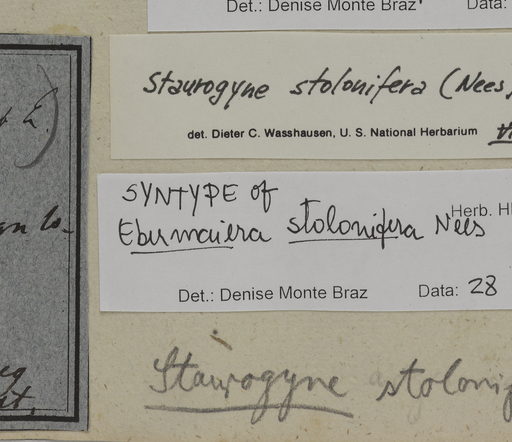 Det.: Denise Monte Braz Data:
Staurogyne stolonifera (Nees)
det. Dieter C. Wasshausen, U. S. National Herbarium
SYNTYPE of
Ebermaiera stolonifera Nees
Herb.
Det.: Denise Monte Braz Data: 28
Staurogyne stolonif